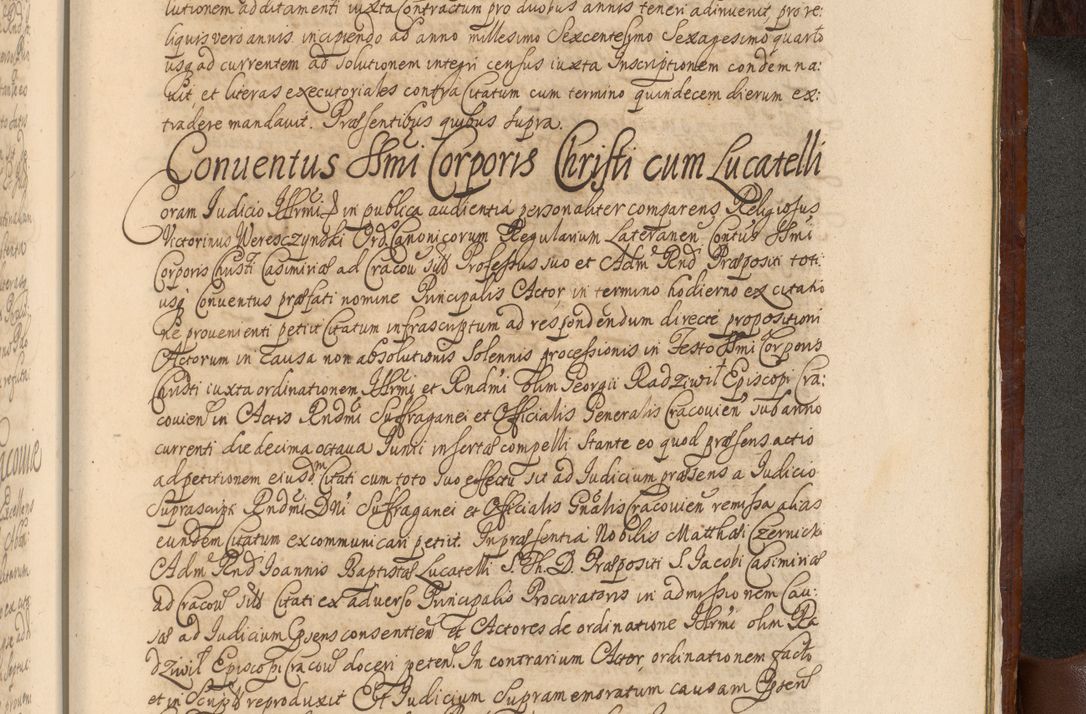 lutionem additamenti iuxta Contractum pro duobus annis teneri adinuenit, pro re:
liquis vero annis incipiendo ab anno millesimo Sexcentesimo Sexagesimo quarto
usq ad currentem ad solutionem integri census iuxta Inscriptionem condemna:
uit, et literas executoriales contra Citatum cum termino quindecem dierum ex:
tradere mandauit. Præsentibus quibus supra.
Conuentus SSmi Corporis Christi cum Lucatelli
Coram Judicio Illrmi D in publica audientia personaliter comparens Religiosus
Victorinus Weresczynski Ord Canonicorum Regularium Lateranen Contus SSmi
Corporis Christi Casimiriæ ad Cracou sub Professus suo et Adm Rnd Præpositi toti:
usq Conuentus præfati nomine Principalis Actor in termino hodierno ex citatio
ne prouenienti petiit Citatum infrascriptum ad respondendum directe propositioni
Actorum in Causa non absolutionis Solennis processionis in Festo SSmi Corporis
Christi iuxta ordinationem Illrmi et Rndmi olim Georgii Radziwił Episcopi Cra:
couien in Actis Rndmi Suffraganei et Officialis Generalis Cracouien sub anno
currenti die decima octaua Junii insertæ compelli Stante eo quod præsens actio
ad petitionem eiusdm Citati cum toto suo effectu sit ad Judicium præsens a Judicio
Suprascripti Rndmi DNi Suffraganei et Officialis Gnalis Cracouien remissa alias
eundem Citatum excommunicari petiit. In præsentia Nobilis Matthæi Czernicki
Adm Rnd Joannis Baptistæ Lucatelli S. Th. D. Præpositi S. Jacobi Casimiriæ
ad Cracou sub Citati ex aduerso Principalis Procuratoris in admissionem Cau:
sæ ad Judicium Gpsens consentien et Actores de ordinatione Illrmi olim Ra
dziwił Episcopi Cracou doceri peten. In contrarium Actor ordinationem facto
et in Scriptis reproduxit Et Judicium Supramemoratum causam Gpsen